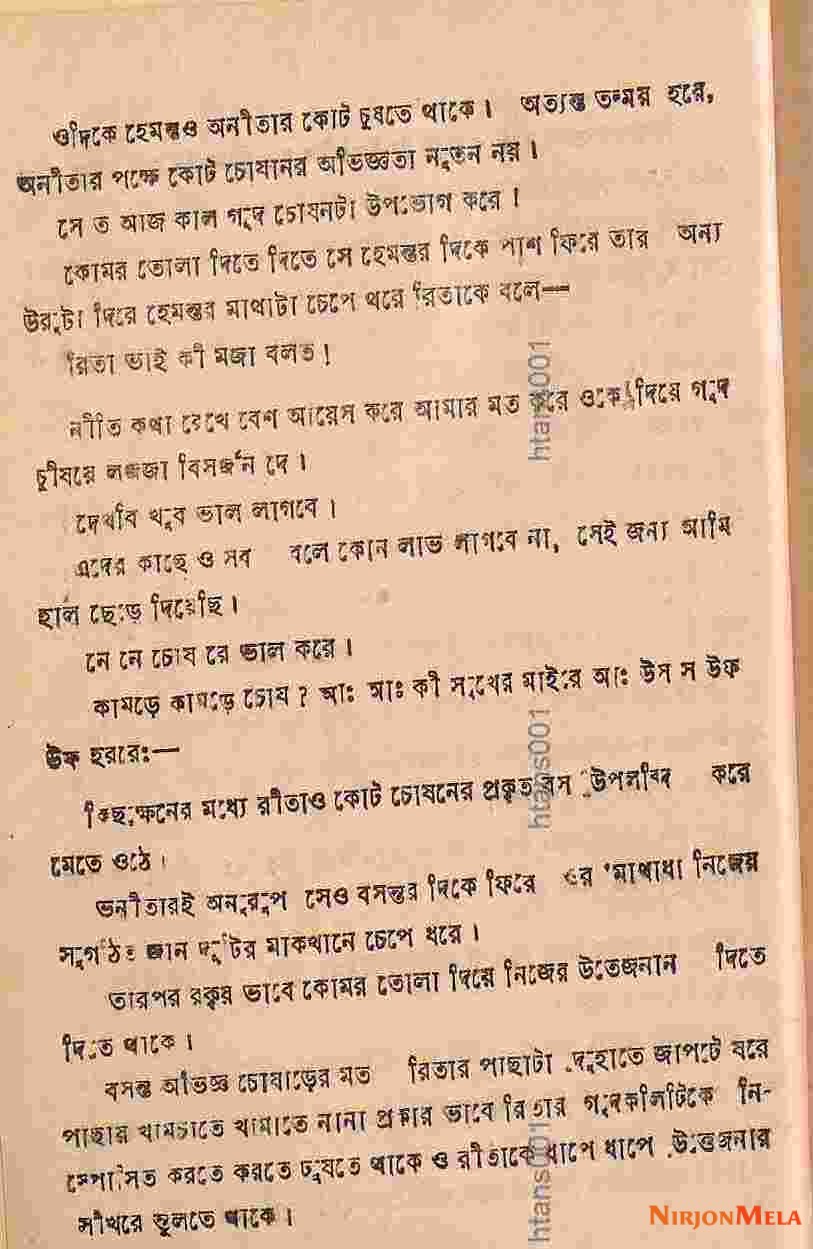 ওদিকে হেমন্তও অনীতার কোট চুষতে থাকে। অত্যন্ত তন্ময় হয়ে,
অনীতার পক্ষে কোট চোষানর অভিজ্ঞতা নূতন নয়।
সে ত আজ কাল গুদ চোষনটা উপভোগ করে।
কোমর তোলা দিতে দিতে সে হেমন্তর দিকে পাশ ফিরে তার অন্য
উরুটা দিয়ে হেমন্তর মাথাটা চেপে ধরে রিতাকে বলে—
রিতা ভাই কী মজা বলত!
নীতি কথা রেখে বেশ আয়েস করে আমার মত করে ওকে দিয়ে গুদ
চুষিয়ে লজ্জা বিসর্জন দে।
দেখবি খুব ভাল লাগবে।
এদের কাছে ও সব বলে কোন লাভ লাগবে না, সেই জন্য আমি
হাল ছেড়ে দিয়েছি।
নে নে চোষ রে ভাল করে।
কামড়ে কামড়ে চোষ? আঃ আঃ কী সুখের মাইরে আঃ উস স উফ
উফ হররেঃ—
কিছুক্ষনের মধ্যে রীতাও কোট চোষনের প্রকৃত রস উপলব্দি করে
মেতে ওঠে।
ভনীতারই অনুরুপ সেও বসন্তর দিকে ফিরে ওর মাথাধা নিজের
সুগঠিত জান দুটির মাকখানে চেপে ধরে।
তারপর রকুর ভাবে কোমর তোলা দিয়ে নিজের উতেজনান দিতে
দিতে থাকে।
বসন্ত অভিজ্ঞ চোষাড়ের মত রিতার পাছাটা দুহাতে জাপটে ধরে
পাছায় খামচাতে থামাতে নানা প্রকার ভাবে রিতার গুদকলিটিকে নি-
স্পোসিত করতে করতে চুষতে থাকে ও রীতাকে ধাপে ধাপে উত্তেজনার
সীখরে তুলতে থাকে।
htans001
htans001
htans001
NIRJONMELA